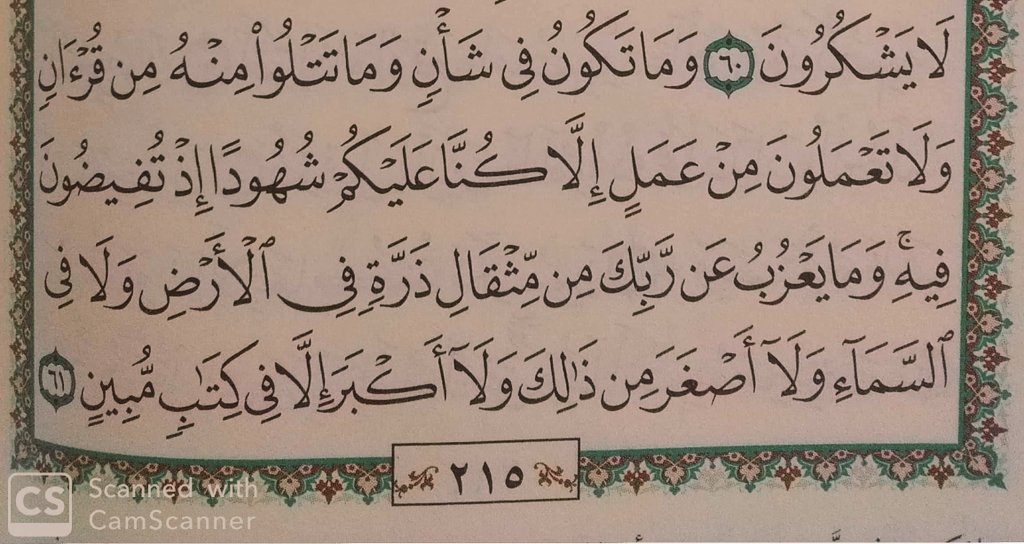 لَا يَشْكُرُونَ ۝٦٠ وَمَا تَكُونُ فِى شَأْنٍ وَمَا تَتْلُوا۟ مِنْهُ مِن قُرْءَانٍ
وَلَا تَعْمَلُونَ مِنْ عَمَلٍ إِلَّا كُنَّا عَلَيْكُمْ شُهُودًا إِذْ تُفِيضُونَ
فِيهِ ۚ وَمَا يَعْزُبُ عَن رَّبِّكَ مِن مِّثْقَالِ ذَرَّةٍ فِى ٱلْأَرْضِ وَلَا فِى
ٱلسَّمَآءِ وَلَآ أَصْغَرَ مِن ذَٰلِكَ وَلَآ أَكْبَرَ إِلَّا فِى كِتَٰبٍ مُّبِينٍ ۝٦١
٢١٥
CS Scanned with
CamScanner